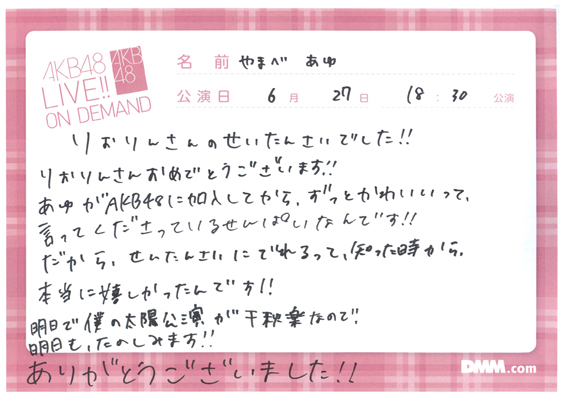 AKB48
LIVE!!
ON DEMAND
AKB
48
名前 やまべ あゆ
公演日 6月 27日 18:30 公演
りおりんさんのせいたんさいでした!!
りおりんさんおめでとうございます!!
あゆがAKB48に加入してから、ずっとかわいいって、
言ってくださっているせんぱいなんです!!
だから、せいたんさいにでれるって、知った時から、
本当に嬉しかったんです!!
明日で僕の太陽公演が千秋楽なので!
明日も、たのしみます!!
ありがとうございました!!
DMM.com